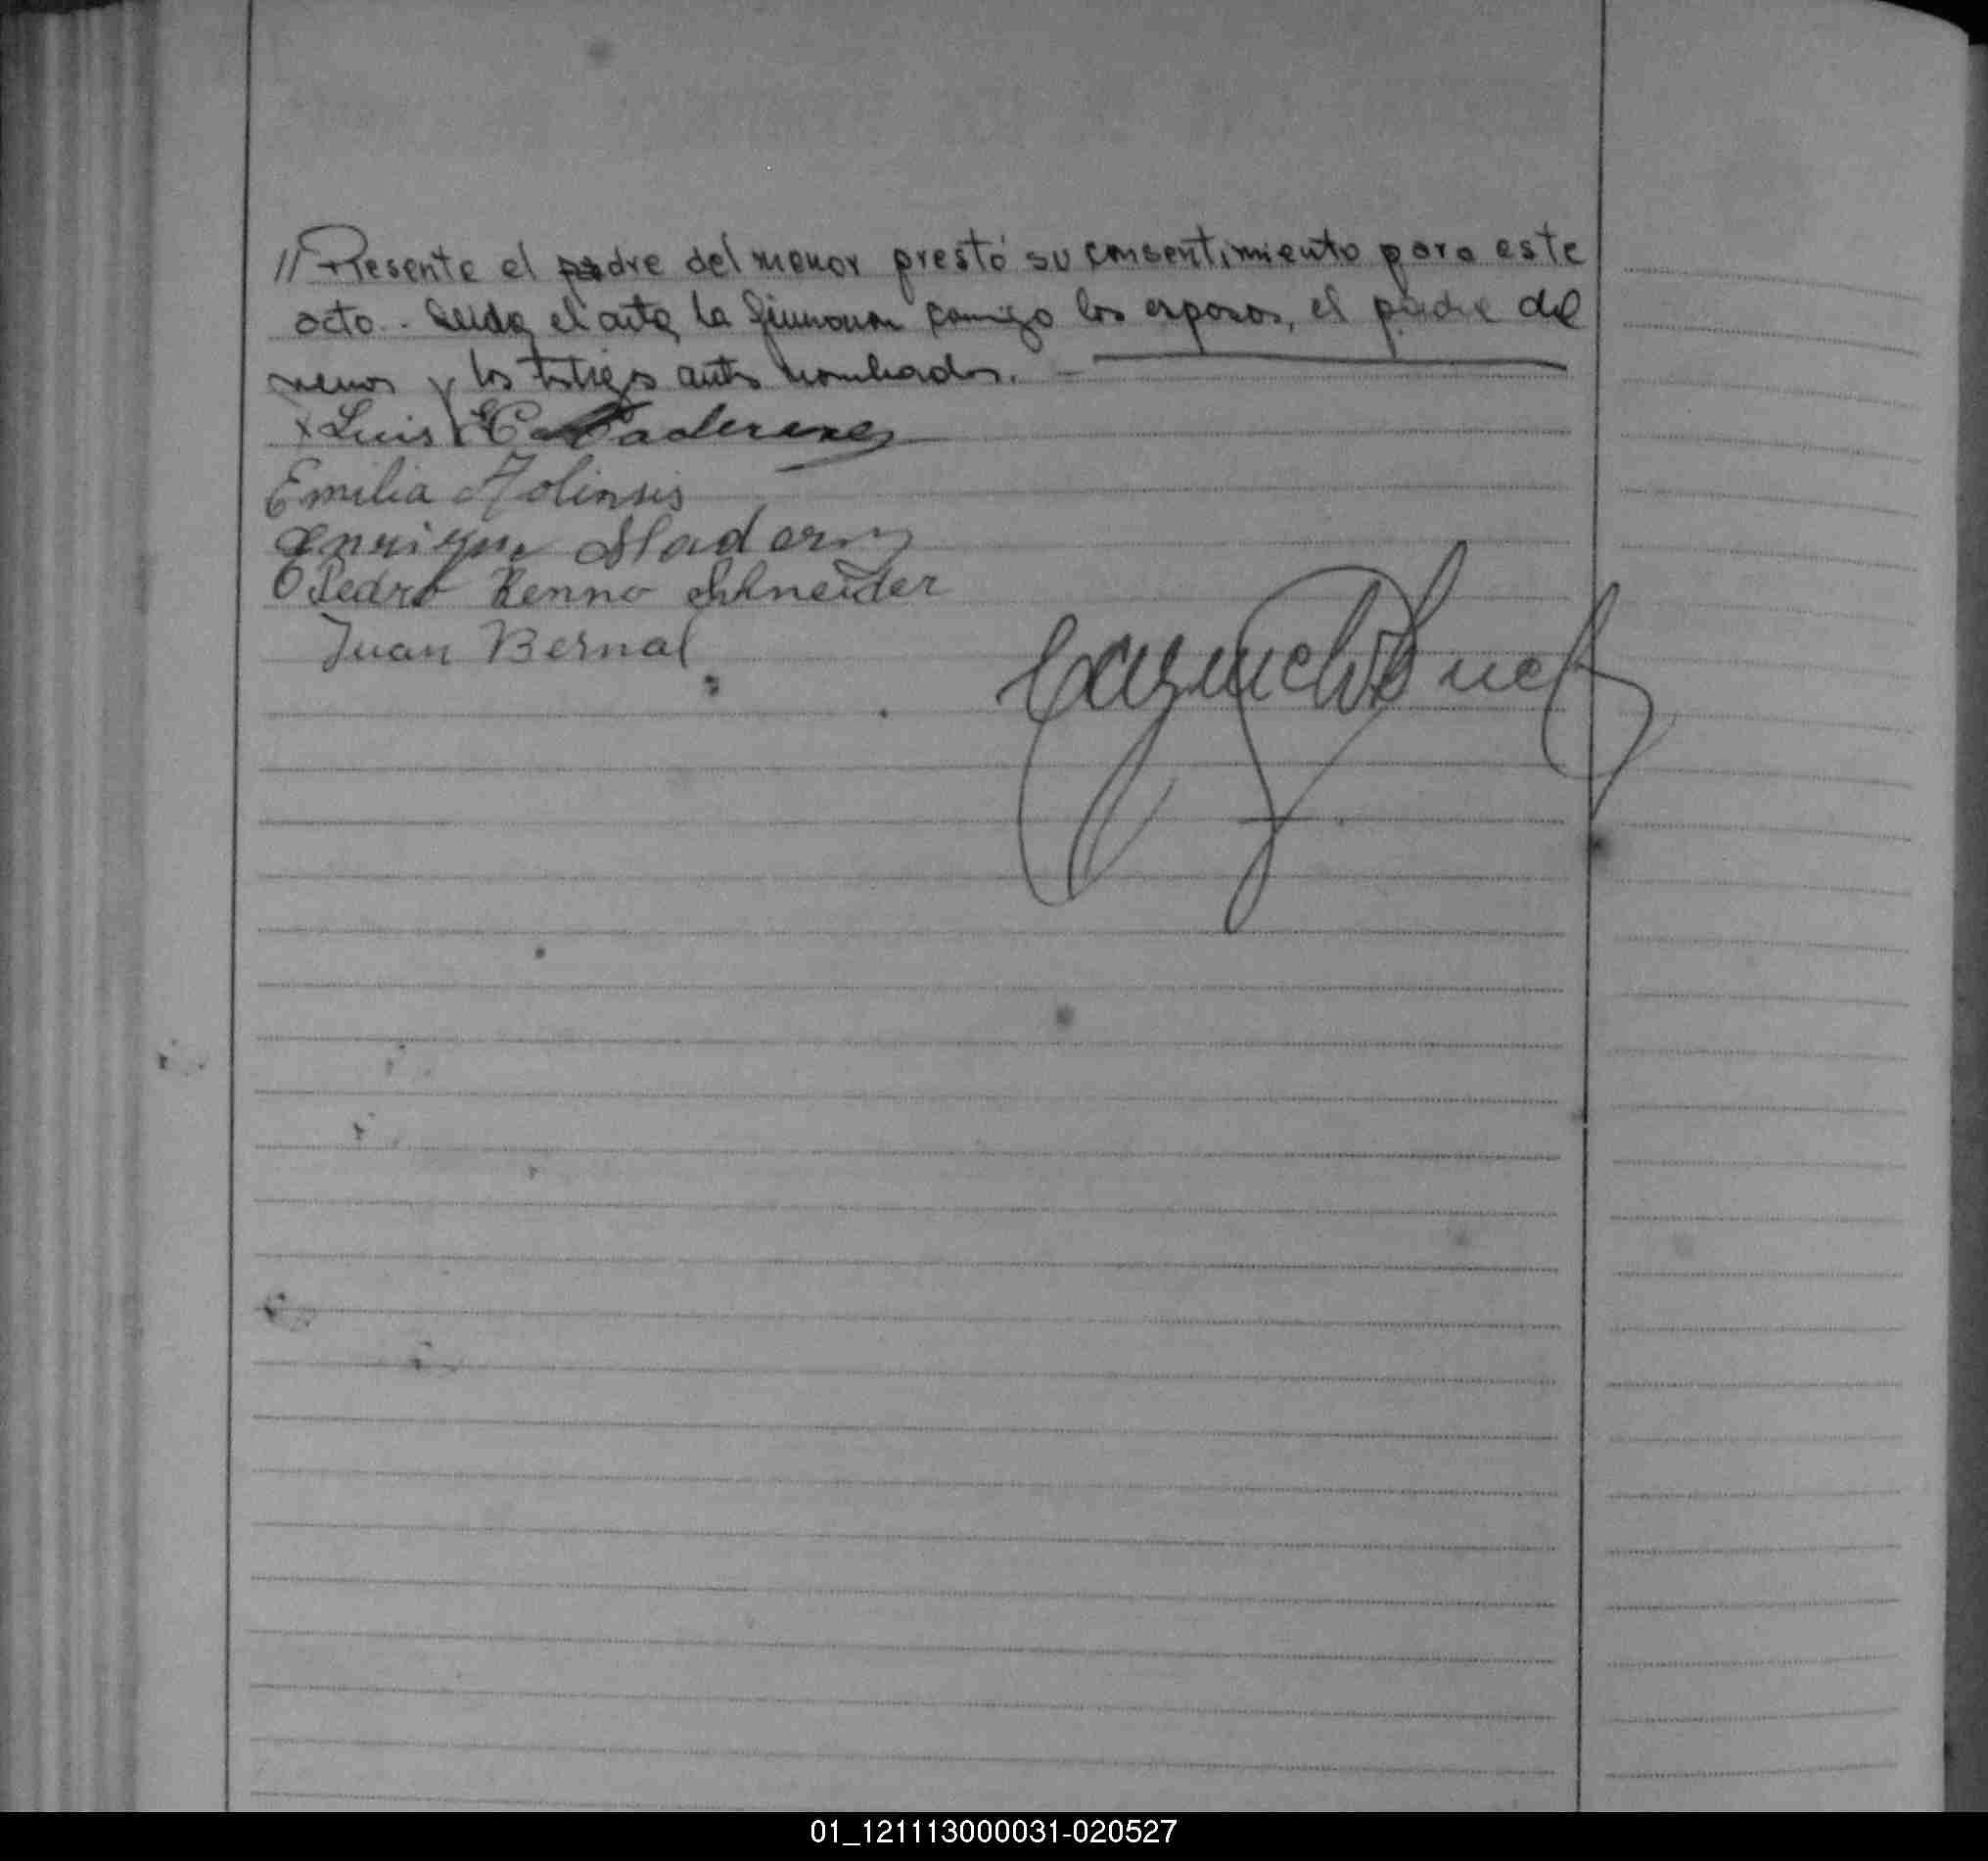 // Presente el padre del menor prestó su consentimiento para este
acto. Leida el acta la firmaron conmigo los esposos, el padre del
menor y los testigos antes nombrados.
x Luis E
Emilia
Enrique Maderny
Pedro Benno Schneider
Juan Bernal
01_121113000031-020527